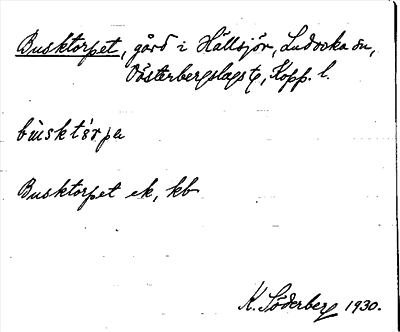 Busktorpet, gård i Hällsjön, Ludvika sn,
Västerbergslags tg, Kopp. l.
bùsktɷ́rpa
Busktorpet ek, kb
K. Söderberg 1930.